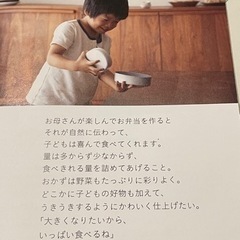 お母さんが楽しんでお弁当を作ると
それが自然に伝わって、
子どもは喜んで食べてくれます。
量は多からず少なからず、
食べきれる量を詰めてあげること。
おかずは野菜もたっぷりに彩りよく。
どこかに子どもの好物も加えて、
うきうきするようにかわいく仕上げたい。
「大きくなりたいから、
いっぱい食べるね」